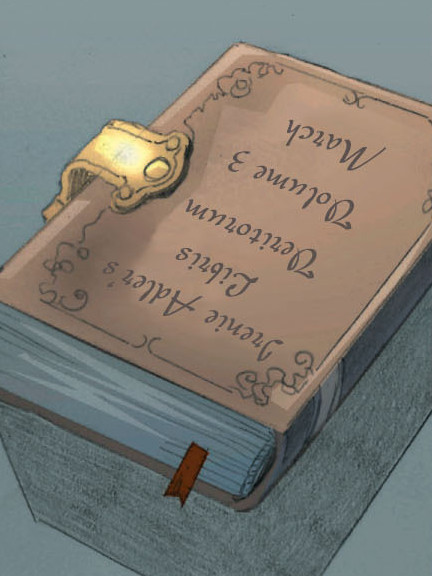 Irenie Adler's
Libris
Veritorum
Volume 3
March